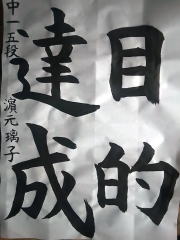 目的
達成
中一五段 濵元璃子